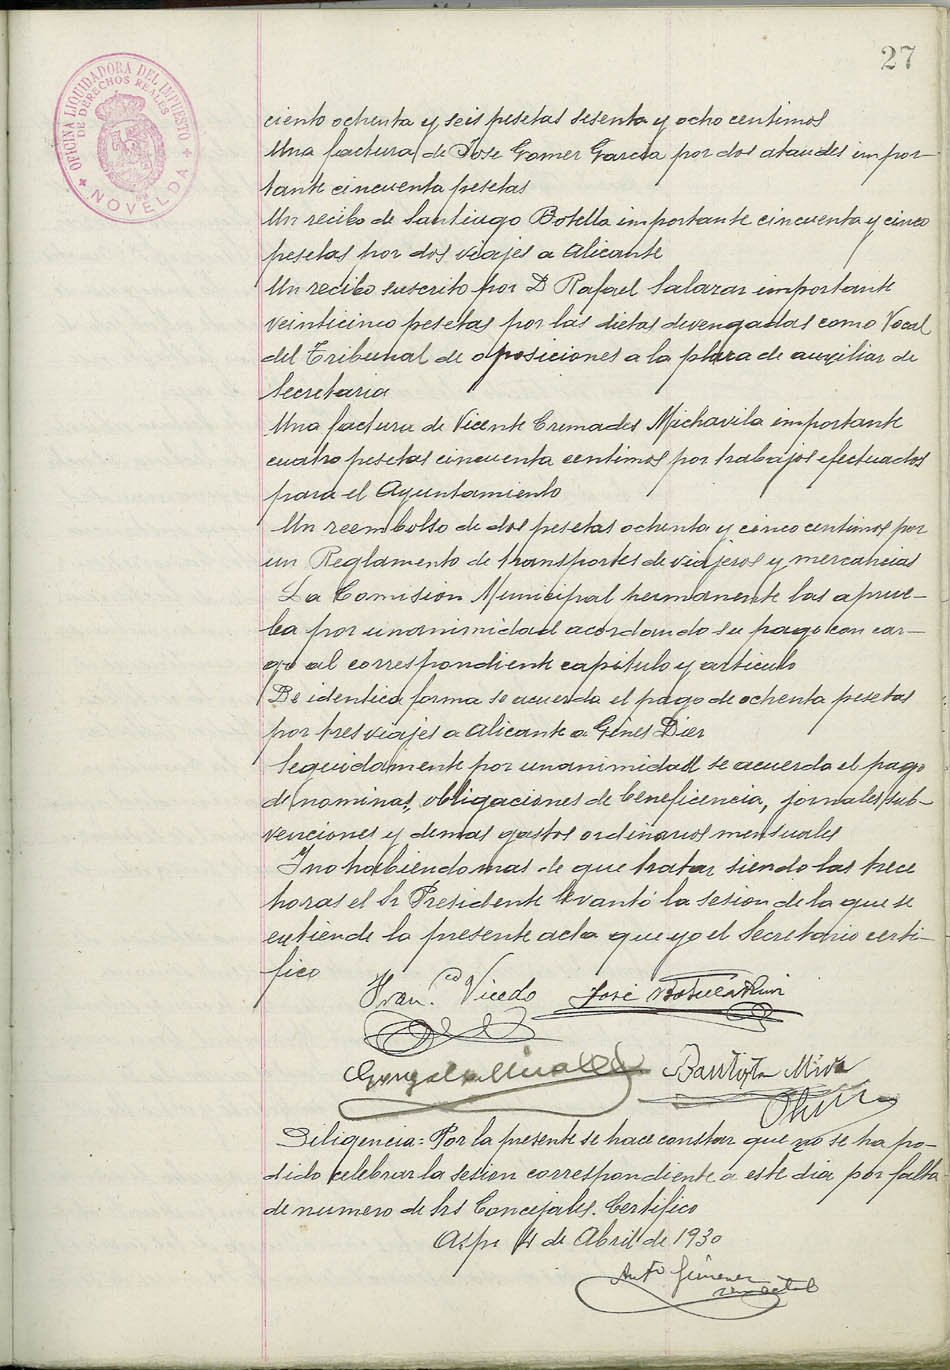 27
OFICINA LIQUIDADORA DEL IMPUESTO
DE DERECHOS REALES
NOVELDA
ciento ochenta y seis pesetas sesenta y ocho centimos
Una factura de Jose Gomer Garcia por dos ataudes impor-
tante cincuenta pesetas
Un recibo de Santiago Botella importante cincuenta y cinco
pesetas por dos viajes a Alicante
Un recibo suscrito por D Rafael Salazar importante
veinticinco pesetas por las dietas devengadas como Vocal
del Tribunal de oposiciones a la plaza de auxiliar de
Secretaria
Una factura de Vicente Cremades Michavila importante
cuatro pesetas cincuenta centimos por trabajos efectuados
para el Ayuntamiento
Un reembolso de dos pesetas ochenta y cinco centimos por
un Reglamento de transportes de viajeros y mercancias
La Comision Municipal permanente las aprue-
ba por unanimidad acordando su pago con car-
go al correspondiente capitulo y articulo
De identica forma se acuerda el pago de ochenta pesetas
por tres viajes a Alicante a Gines Dier
Seguidamente por unanimidad se acuerda el pago
de nominas, obligaciones de beneficencia, jornales, sub-
venciones y demas gastos ordinarios mensuales
Y no habiendo mas de que tratar siendo las trece
horas el Sr Presidente levantó la sesion de la que se
extiende la presente acta que yo el Secretario certi-
fico
Fran.co Vicedo José
Gonzalo Bautista Mira
Diligencia = Por la presente se hace constar que no se ha po-
dido celebrar la sesion correspondiente a este dia por falta
de numero de Srs Concejales. Certifico
Aspe 4 de Abril de 1930
Anto Gimenez